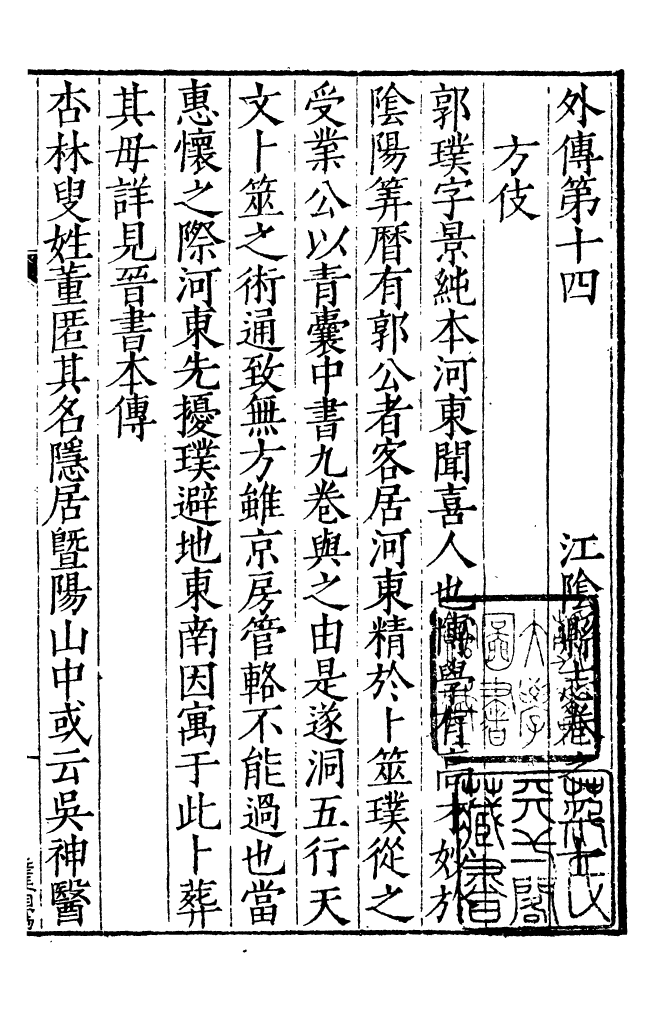 外傳第十四　江陰縣志卷之
方伎
郭璞字景純本河東聞喜人也博學有高才妙於
陰陽筭曆有郭公者客居河東精於卜筮璞從之
受業公以青囊中書九卷與之由是遂洞五行天
文卜筮之術通致無方雖京房管輅不能過也當
惠懷之際河東先擾璞避地東南因寓于此卜葬
其母詳見晉書本傳
杏林叟姓董匿其名隱居暨陽山中或云吳神醫
大學
圖書
天一閣
藏書